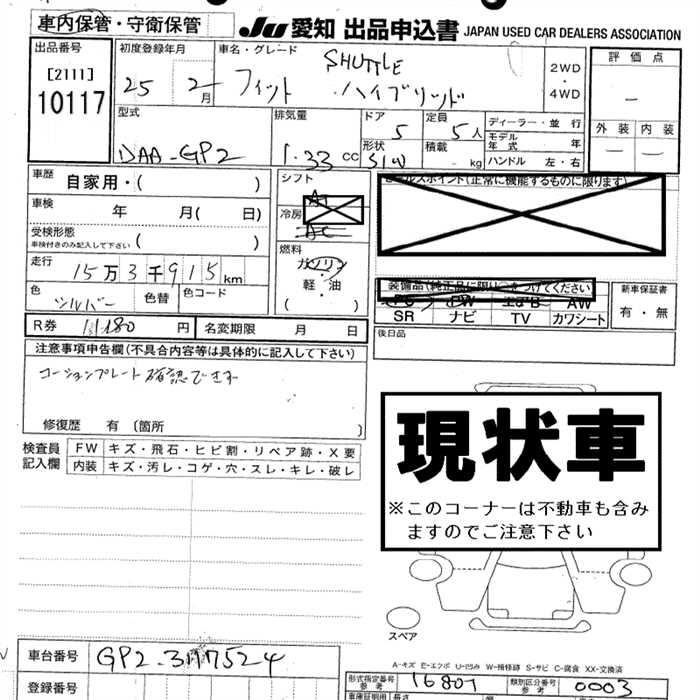 車内保管・守衛保管
JU 愛知 出品申込書 JAPAN USED CAR DEALERS ASSOCIATION
出品番号
[2111]
10117
初度登録年月
25 2月
車名・グレード
SHUTTLE
フィット ハイブリッド
2WD
・
4WD
評価点
—
外装 内装
— —
型式
DAA-GP2
排気量
1.33 CC
ドア
5
形状
S/W
定員
5人
積載
kg
ディーラー・並行
モデル年式 年
ハンドル 左・右
車歴
自家用・( )
車検
年 月( 日)
受検形態
車検付きのみ記入して下さい ( )
走行
15万3千915km
色
シルバー
色替
色コード
シフト
AT
冷房
AC
燃料
ガソリン
・
軽・油
( )
セールスポイント(正常に機能するものに限ります)
装備品(純正品に限り○をつけてください)
PS PW エアB AW
SR ナビ TV カワシート
新車保証書
有・無
R券 11180円
名変期限 月 日
後日品
注意事項申告欄(不具合内容等は具体的に記入して下さい)
コーションプレート確認できず
修復歴 有 〔箇所 〕
検査員
記入欄
FW キズ・飛石・ヒビ割・リペア跡・X要
内装 キズ・汚レ・コゲ・穴・スレ・キレ・破レ
現状車
※このコーナーは不動車も含み
ますのでご注意下さい
スペア
A-キズ E-エクボ U-凹み W-補修跡 S-サビ C-腐食 XX-交換済
車台番号
登録番号
形式指定番号
参考
16807
類別区分番号
参考
0003
自動車証明用
長さ